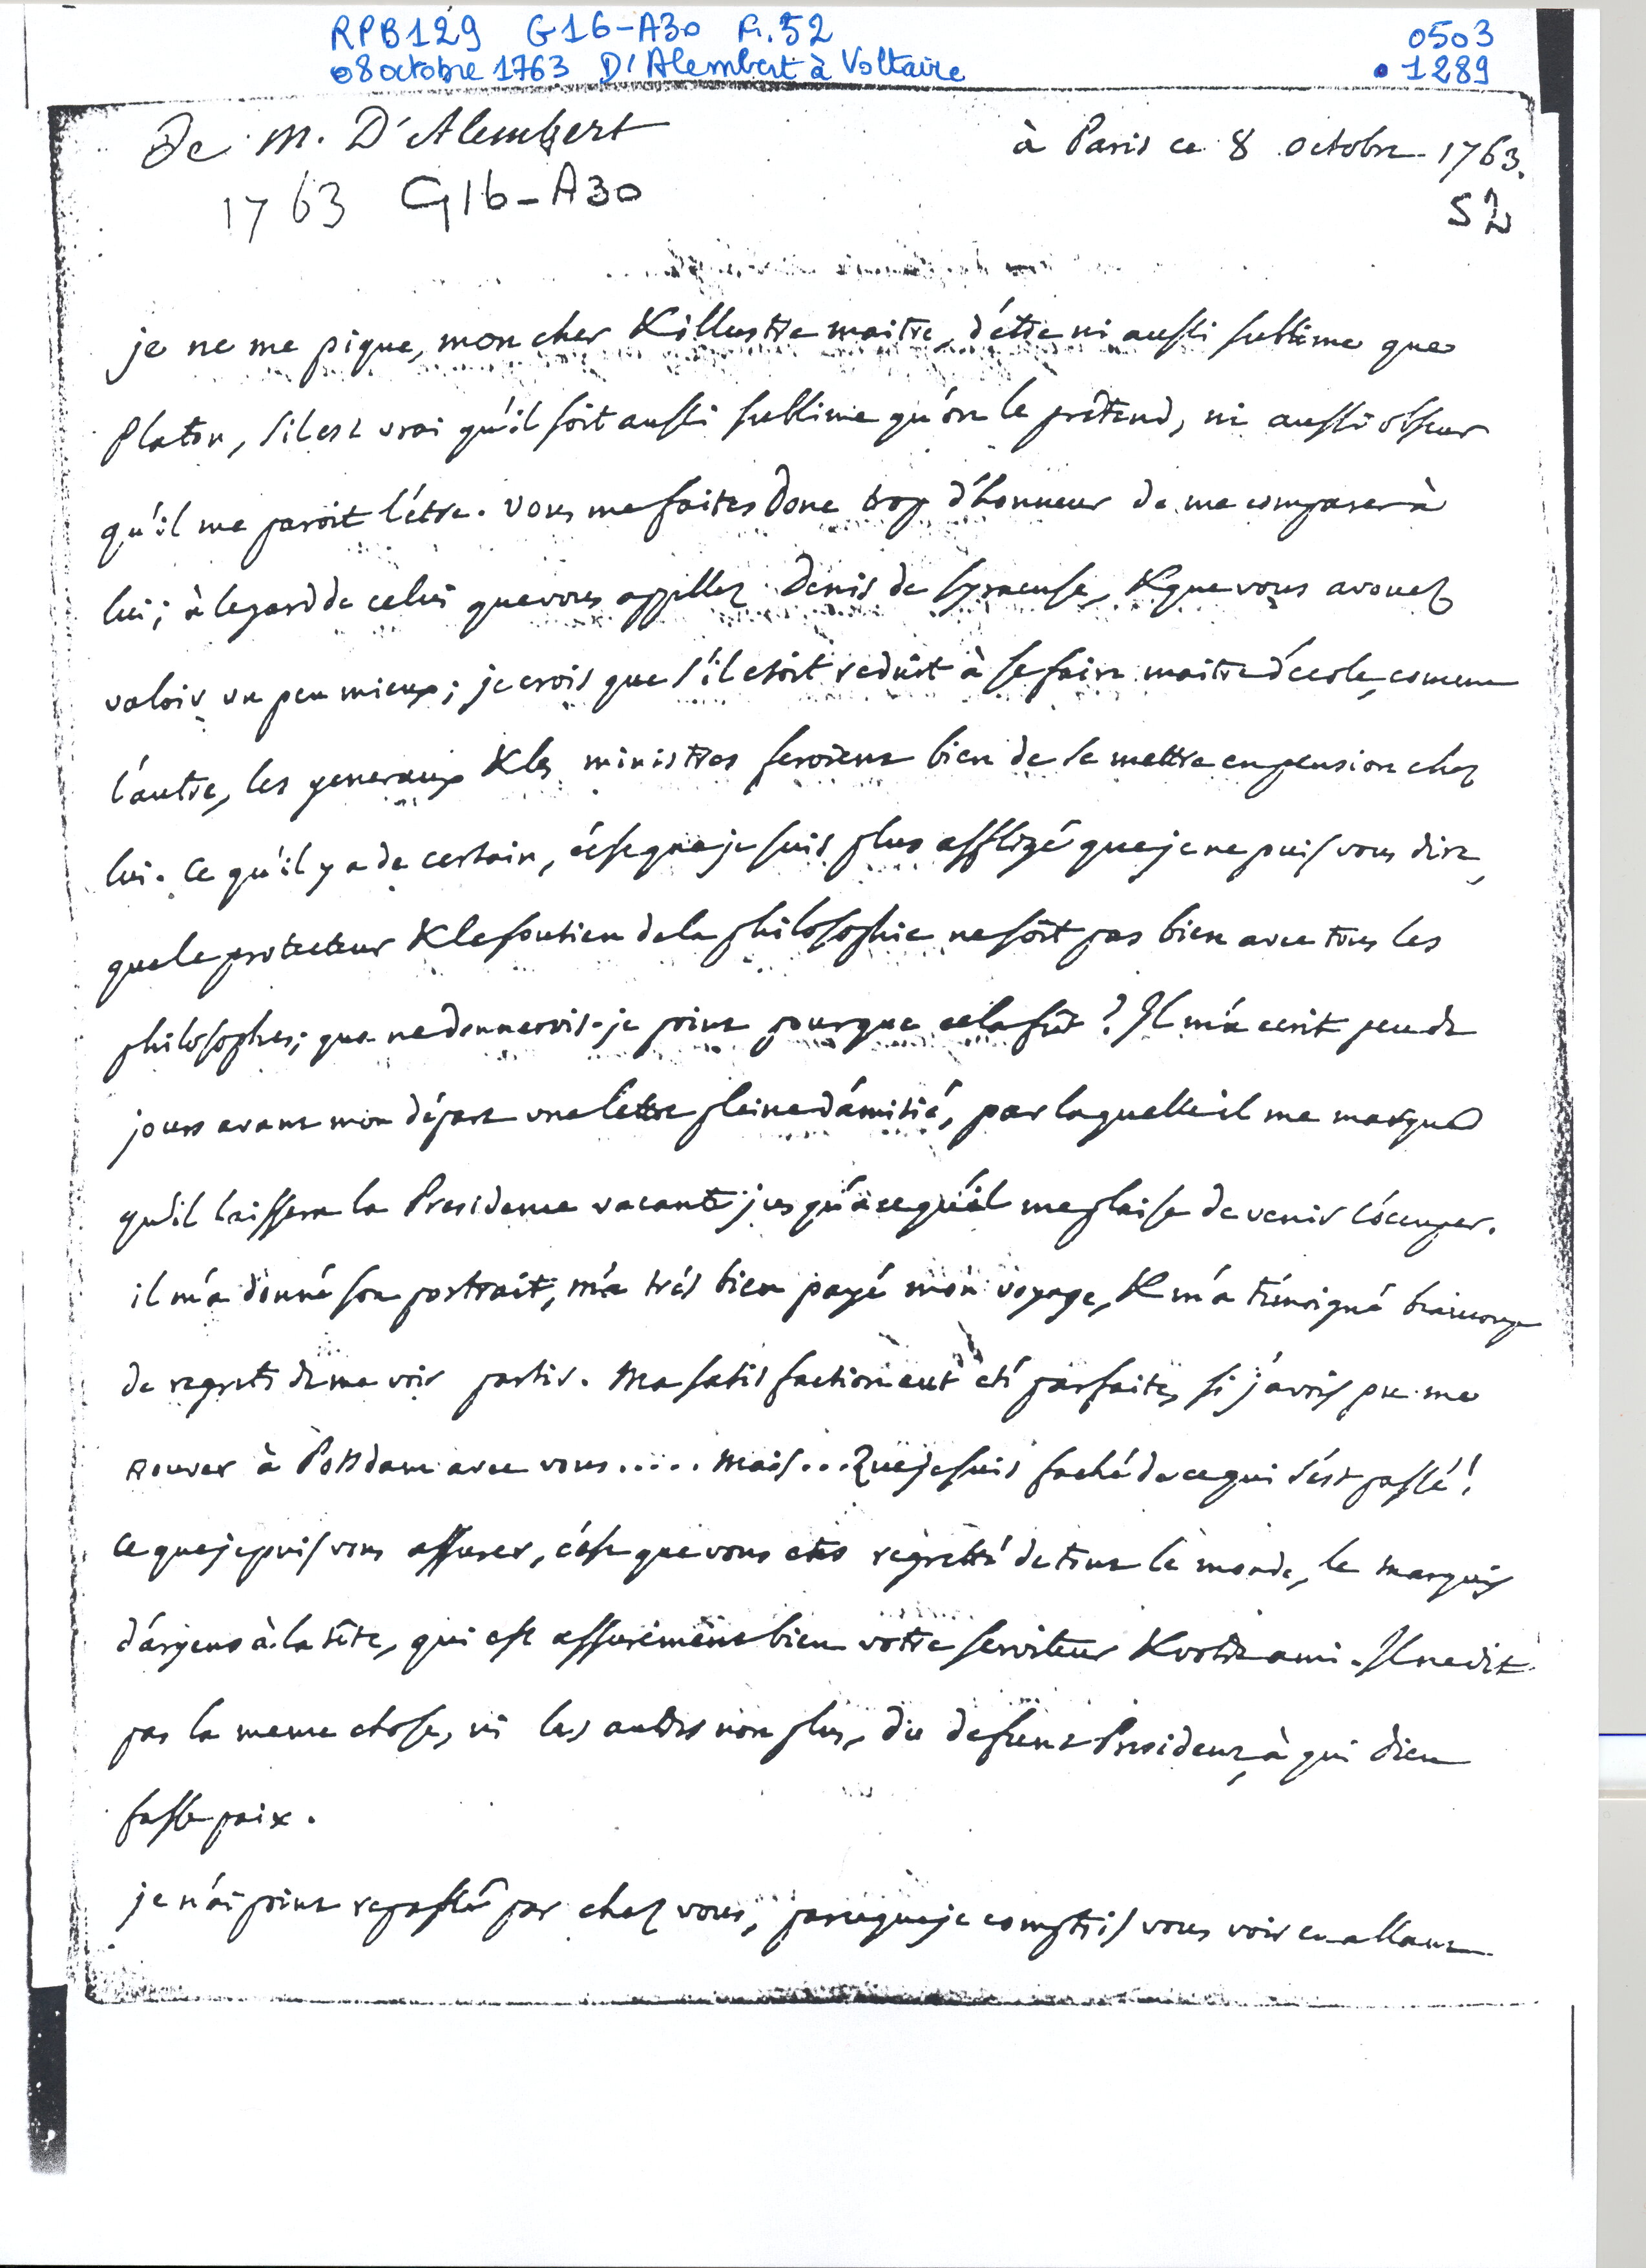 RPB129 G16-A30 Fr.52
08 octobre 1763 D'Alembert à Voltaire
0503
1289
De M. D'Alembert
à Paris ce 8 octobre 1763.
1763 G16-A30
52
je ne me pique, mon cher & illustre maitre, d'être ni aussi sublime que
Platon, s'il est vrai qu'il soit aussi sublime qu'on le prétend, ni aussi obscur
qu'il me paroit l'être. vous me faites donc trop d'honneur de me comparer à
lui; à legard de celui que vous appellez Denis de syracuse, & que vous avouez
valoir un peu mieux; je crois que s'il etoit reduit à se faire maitre d'ecole, comme
l'autre, les generaux & les ministres feroient bien de se mettre en pension chez
lui. Ce qu'il y a de certain, c'est que je suis plus affligé que je ne puis vous dire,
que le protecteur & le soutien de la philosophie ne soit pas bien avec tous les
philosophes; que ne donnerois-je point pour que cela fût? Il m'a ecrit peu de
jours avant mon départ une lettre pleine d'amitié, par laquelle il me marque
qu'il laissera la Presidence vacante jusqu'à ce qu'il me plaise de venir l'occuper.
il m'a donné son portrait, m'a très bien payé mon voyage, & m'a témoigné beaucoup
de regrets de me voir partir. Ma satisfaction eut été parfaite, si j'avois pu me
trouver à Potsdam avec vous..... mais... Que je suis faché de ce qui s'est passé!
Ce que je puis vous assurer, c'est que vous etes regretté de tout le monde, le marquis
d'argens à la tête, qui est assurément bien votre serviteur & votre ami. Il ne dit
pas la meme chose, ni les autres non plus, du defunt President, à qui dieu
fasse paix.
je n'ai point repassé par chez vous, parceque je comptois vous voir en allant